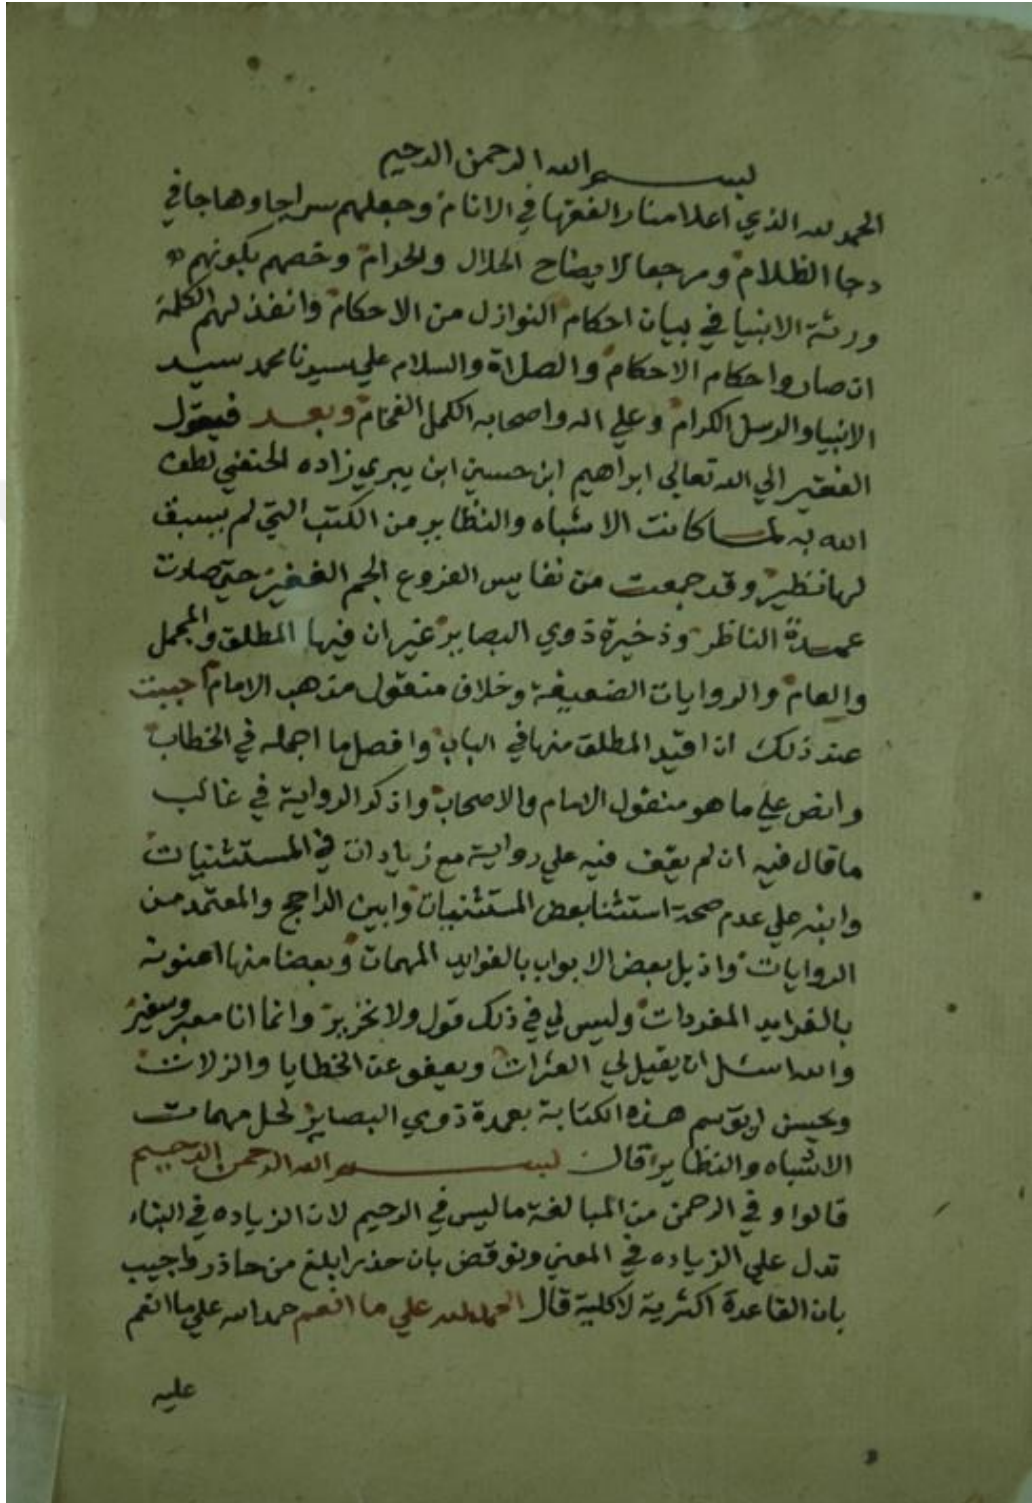 بسم الله الرحمن الرحيم
الحمد لله الذي اعلا منار الفقها في الانام وجعلهم سراجا وهاجا في
دجا الظلام ومرجعا لايضاح الحلال والحرام وخصهم بكونهم
ورثة الانبيا في بيان احكام النوازل من الاحكام وانفذ لهم الكلمة
ان صاروا حكام الاحكام والصلاة والسلام علي سيدنا محمد سيد
الانبيا والرسل الكرام وعلي اله واصحابه الكمل الفخام وبعد فيقول
الفقير الي الله تعالي ابراهيم ابن حسين ابن بيري زاده الحنفي لطف
الله به لما كانت الاشباه والنظاير من الكتب التي لم يسبق
لها نظير وقد جمعت من نفايس الفروع الجم الغفير حتي صارت
عمدة الناظر وذخيرة ذوي البصاير غير ان فيها المطلق والمجمل
والعام والروايات الضعيفة وخلاف منقول مذهب الامام احببت
عند ذلك ان اقيد المطلق منها في الباب وافصل ما اجمله في الخطاب
وانص علي ما هو منقول الامام والاصحاب واذكر الرواية في غالب
ما قال فيه ان لم يقف فيه علي رواية مع زيادات في المستثنيات
وانبه علي عدم صحة استثنا بعض المستثنيات وابين الراجح والمعتمد من
الروايات واذيل بعض الابواب بالفوايد المهمات وبعضا منها اعنونه
بالفرايد المفردات وليس لي في ذلك قول ولا تحرير وانما انا معبر وسفير
والله اسئل ان يقيل لي العثرات ويعفو عن الخطايا والزلات
ويحسن ان توسم هذه الكتابة بعمدة ذوي البصاير لحل مهمات
الاشباه والنظاير قال بسم الله الرحمن الرحيم
قالوا وفي الرحمن من المبالغة ما ليس في الرحيم لان الزياده في البناء
تدل علي الزياده في المعني ونوقض بان حذرا بلغ من حاذر واجيب
بان القاعدة اكثرية لا كلية قال الحمد لله علي ما انعم حمد الله علي ما انعم
عليه